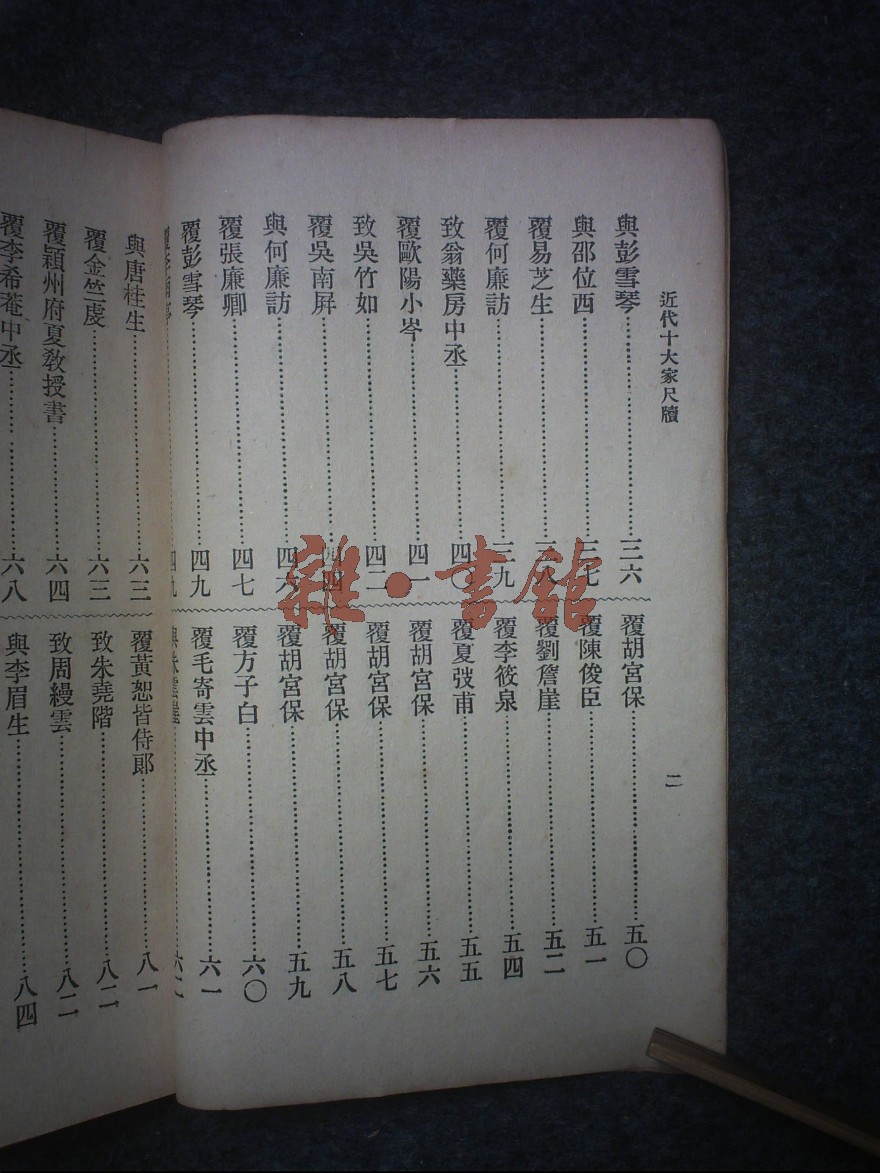 近代十大家尺牘
二
與彭雪琴⋯⋯三六
與邵位西⋯⋯三七
覆易芝生⋯⋯三八
覆何廉訪⋯⋯三九
致翁藥房中丞⋯⋯四〇
覆歐陽小岑⋯⋯四一
致吳竹如⋯⋯四二
覆吳南屏⋯⋯四四
與何廉訪⋯⋯四六
覆張廉卿⋯⋯四七
覆彭雪琴⋯⋯四九
四九
覆胡宮保⋯⋯五〇
覆陳俊臣⋯⋯五一
覆劉詹崖⋯⋯五二
覆李筱泉⋯⋯五四
覆夏弢甫⋯⋯五五
覆胡宮保⋯⋯五六
覆胡宮保⋯⋯五七
覆胡宮保⋯⋯五八
覆胡宮保⋯⋯五九
覆方子白⋯⋯六〇
覆毛寄雲中丞⋯⋯六一
六二
與唐桂生⋯⋯六三
覆金竺虔⋯⋯六三
覆潁州府夏教授書⋯⋯六四
覆李希菴中丞⋯⋯六八
覆黃恕皆侍郎⋯⋯八一
致朱堯階⋯⋯八二
致周縵雲⋯⋯八二
與李眉生⋯⋯八四
雜·書館